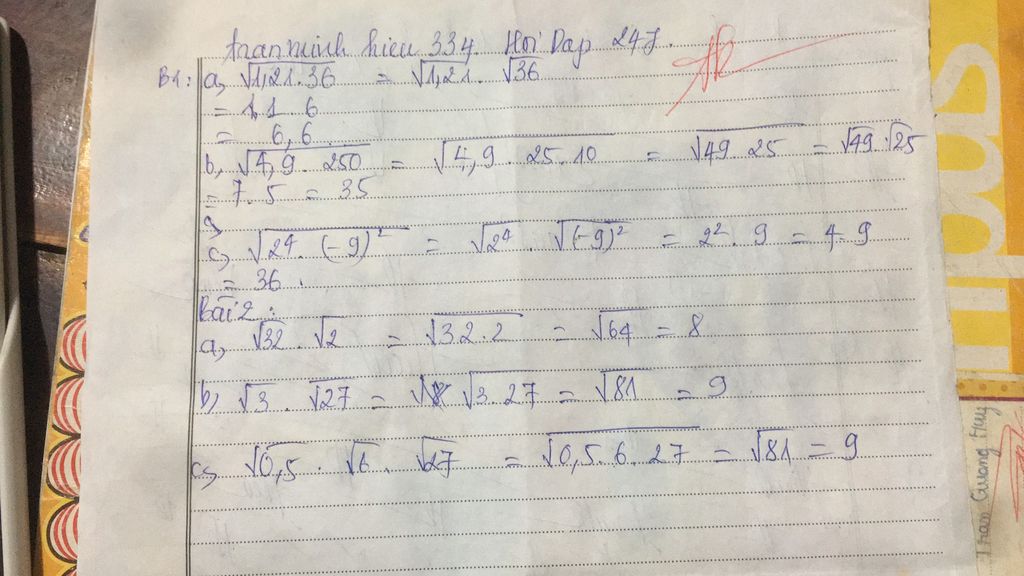 tranminh hieu 334. Hoi Dap 247.
B1: a, √1,21.36 = √1,21. √36
= 1,1 6
= 6,6
b, √4,9 . 250 = √4,9 . 25.10 = √49.25 = √49.√25
= 7.5 = 35
c, √2⁴. (-9)² = √2⁴ . √(-9)² = 2² . 9 = 4.9
= 36.
bài 2:
a, √32 . √2 = √32.2 = √64 = 8
b, √3 . √27 = √3.27 = √81 = 9
c, √0,5 . √6 . √27 = √0,5.6.27 = √81 = 9
Tran Quang Huy